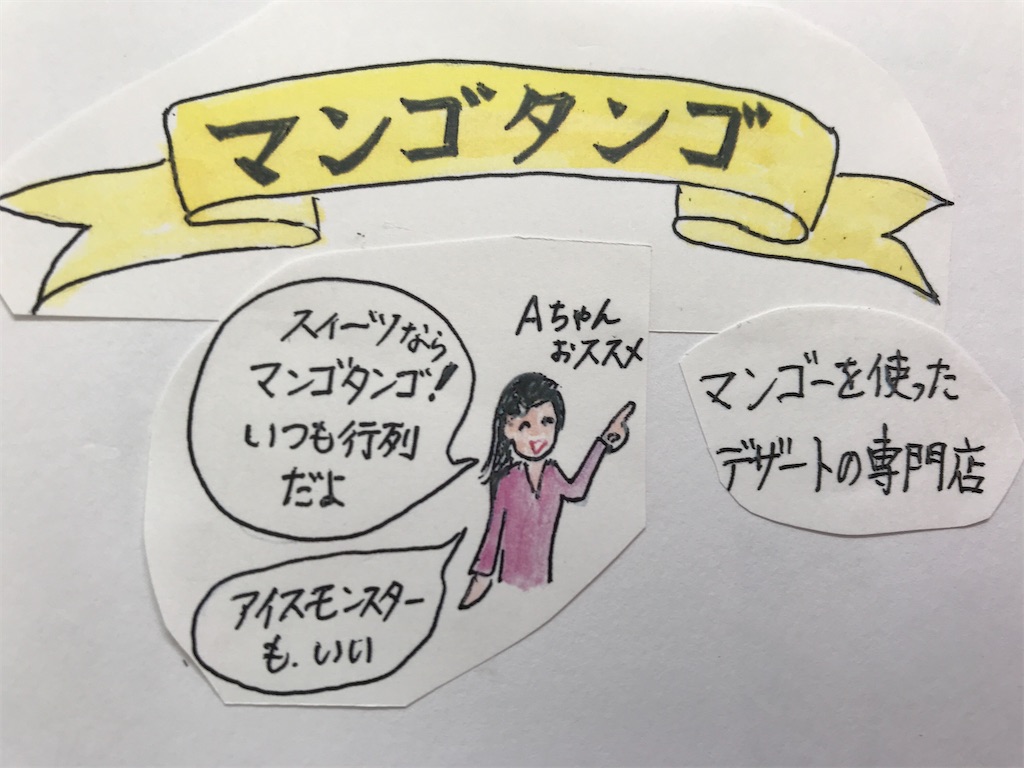 マンゴタンゴ
Aちゃん
おススメ
スィーツなら
マンゴタンゴ!
いつも行列
だよ
アイスモンスター
も.いい
マンゴーを使った
デザートの専門店